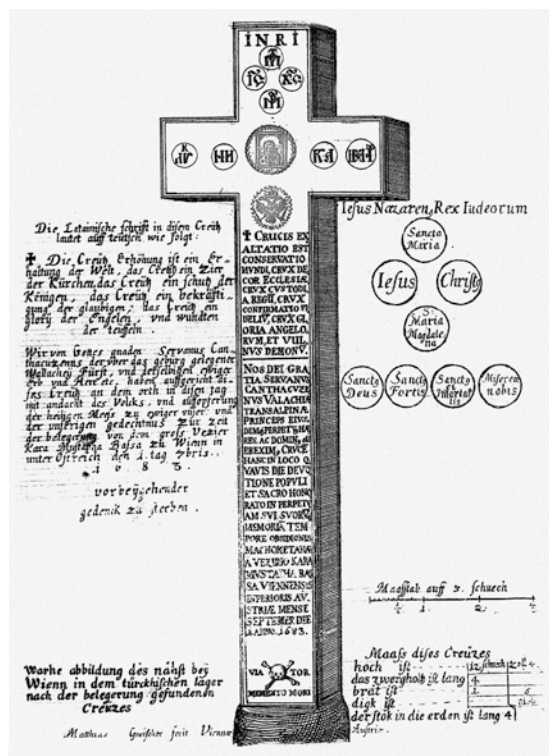 INRI
Die Lateinische schrift in disem Creütz
lautet auff teütsch wie folgt:
✝ Die Creütz Erhöhung ist ein Er-
haltung der Welt, das Creütz ein Zier
der Kürchen, das Creütz ein schutz der
Königen, das Creütz ein bekräfti-
gung der glaubigen, das Creütz ein
glory der Engelen, und wundten
der teüffeln.
Wir von Gottes gnaden Servanus Can-
thacuzenus der über das gebürg gelegener
Wallachey Fürst, und desselbigen ewiger
Erb und Herr etc, haben auffgericht di-
ses Creütz an dem orth in disen tag
mit andacht des Volks, und auffopferung
der heiligen Mess zu ewiger unser und
der unserigen gedechtnus Zür Zeit
der belegerung von dem gross Vezier
Kara Mustapha Bassa zu Wienn in
unter Ostreich den 1. tag 7bris.
1683.
vorbeÿgehender
gedenck zu sterben.
✝ CRUCIS EX
ALTATIO EST
CONSERVATIO
MVNDI, CRVX DE
COR ECCLESIÆ,
CRVX CVSTODIA
REGU, CRVX
CONFIRMATIO FI
DELIV, CRVX GL
ORIA ANGELO,
RVM, ET VUL
NVS DEMONV.
NOS DEI GRA
TIA SERVANVS
CANTHACVZE
NVS VALACHIÆ
TRANSALPINÆ
PRINCEPS EIVS
DEMQ PERPETS HÆ
RES. AC DOMIN9, etc
EREXIM9, CRVCE
HANC IN LOCO Q
VAVIS DIE DEVO
TIONE POPVLI
ET SACRO HONO
RATO IN PERPETV
AM SVI SVORVQ
MEMORIA TEM
PORE OBSIDIONIS
MACHOMETANÆ
A VEZIRIO KARA
MVSTAPHA BAS
SA VIENNENSIS
INFERIORIS AV
STRIÆ MENSE
SEPTEMBER DIE
1. ANNO. 1683.
VIA TOR
MEMENTO MORI
Iesus Nazaren9 Rex Iudeorum
Sancta
Maria
Iesus
Christ9
S:
Maria
Magdale
na
Sanct9
Deus
Sanct9
Fortis
Sanct9
Immortalis
Miserere
nobis
Maasstab auff 3. schuech
1. 2.
Maass dises Creützes
hoch ist 12 schuech 2 zoll
das zwergholtz ist lang 4
brat ist 1 6
digk ist
der stok in die erden ist lang 4
Warhe abbildung des nähst beÿ
Wienn in dem türckhischen läger
nach der belegerung gefundenen
Creützes
Matthias Greischer fecit Viennae Austriæ.